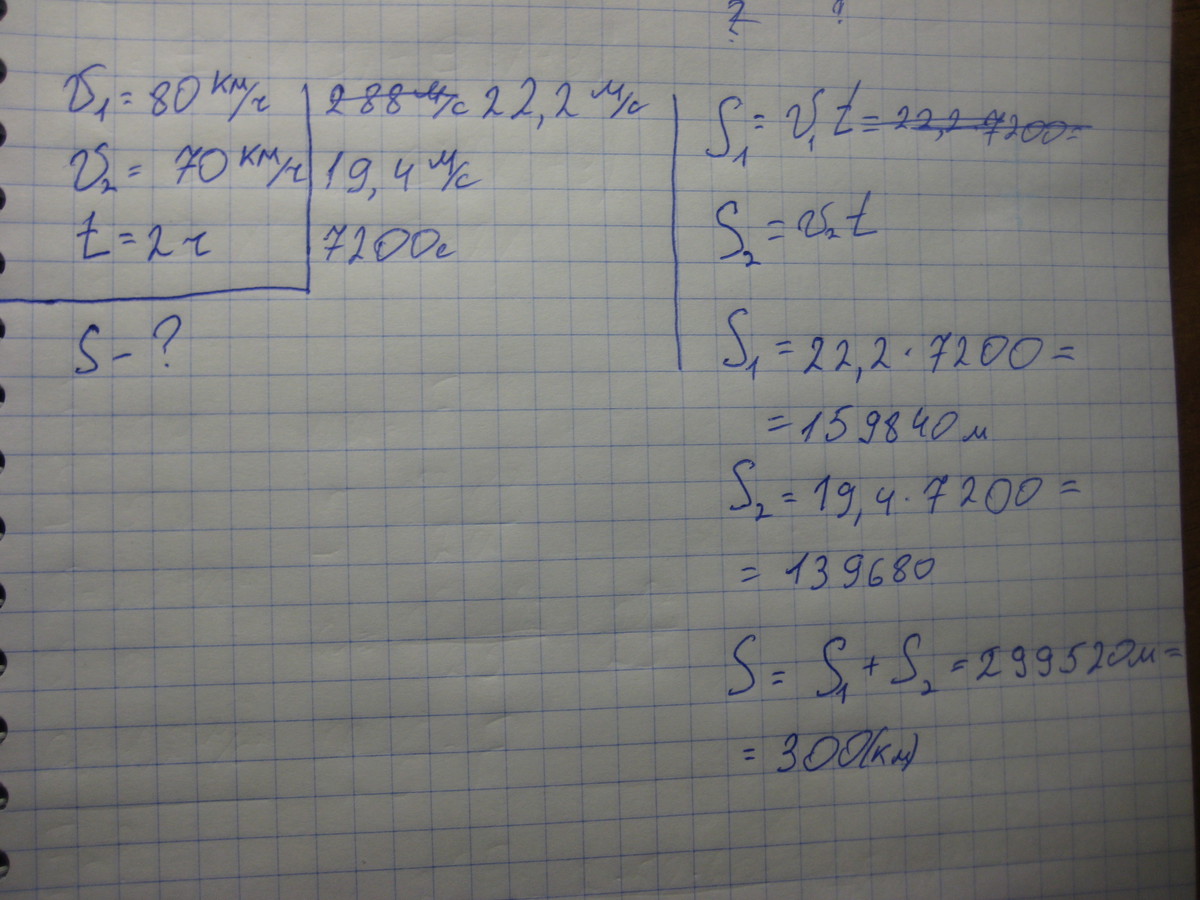 ? ?
υ₁ = 80 км/ч 288 м/с 22,2 м/с
υ₂ = 70 км/ч 19,4 м/с
t = 2 ч 7200с
S - ?
S₁ = υ₁t = 22,2·7200=
S₂ = υ₂t
S₁ = 22,2·7200 =
= 159840м
S₂ = 19,4·7200 =
= 139680
S = S₁ + S₂ = 299520м =
= 300(км)